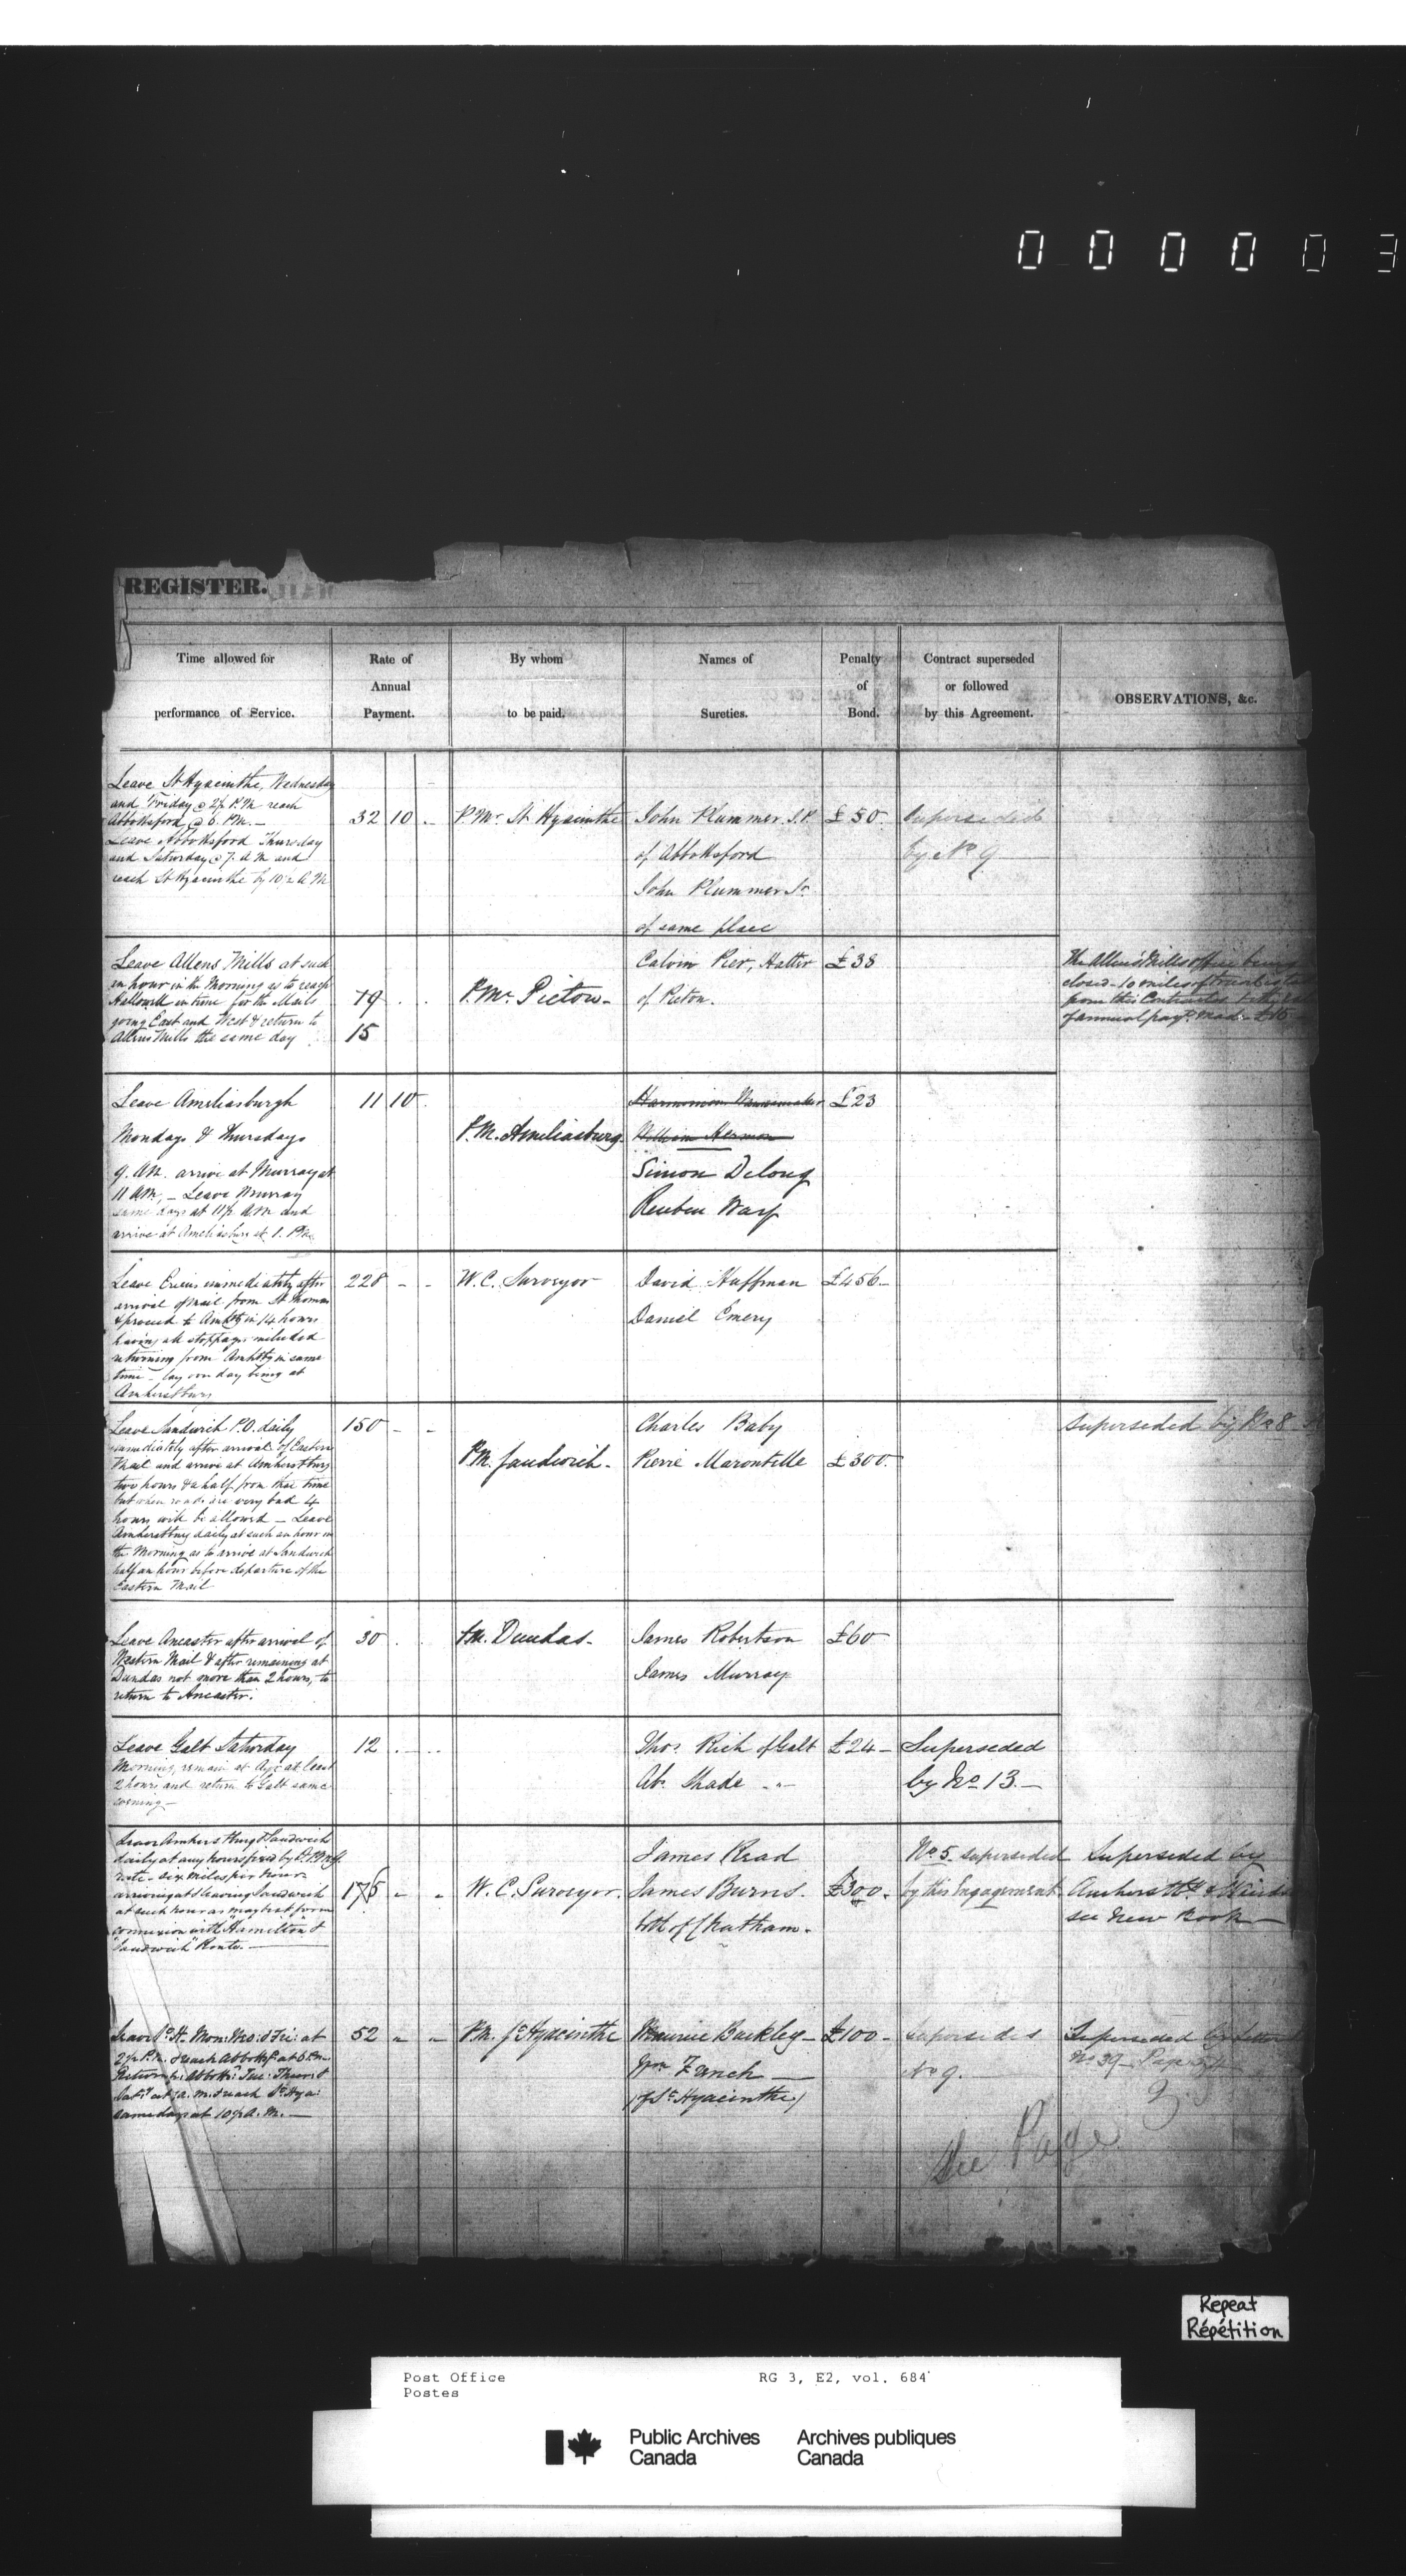 0 0 0 0 0 3
REGISTER.
Time allowed for
performance of Service.
Rate of
Annual
Payment.
By whom
to be paid.
Names of
Sureties.
Penalty
of
Bond.
Contract superseded
or followed
by this Agreement.
OBSERVATIONS, &c.
Leave St Hyacinthe, Wednesday
and Friday @ 2½ P.M. reach
Abbottsford @ 6 P.M. —
Leave Abbottsford Thursday
and Saturday @ 7. A M and
reach St Hyacinthe by 10½ A M
32 10 -
P. Mr. St Hyacinthe
John Plummer J.P.
of Abbottsford
John Plummer Jr.
of same place
£50
Superseded
by No 9
Leave Allens Mills at such
an hour in the Morning as to reach
Hallowell in time for the Mails
going East and West & return to
Allens Mills the same day
19
15
P. Mr. Picton -
Calvin Pier, Hatter
of Picton.
£38
The Allens Mills office being
closed - 10 miles of travel is taken
from this Contractor &
of annual payt. made £15
Leave Ameliasburgh
Mondays & Thursdays
9. AM. arrive at Murray at
11 AM, - Leave Murray
same days at 11½ AM and
arrive at Ameliasburg at 1. PM.
11 10 .
P.M. Ameliasburg.
William Harmon
Simon Delong
Reuben Way
£23
Leave immediately after
arrival of Mail from St Thomas
& proceed to Amhstg in 14 hours
having all stoppages included
returning from Amhstg in same
time - lay over day being at
Amherstburg
228 - -
W. C. Surveyor
David Huffman
Daniel Emery
£456 -
Leave Sandwich P.O. daily
immediately after arrival of Eastern
Mail and arrive at Amherstburg
two hours & a half from that time
but when roads are very bad 4
hours will be allowed - Leave
Amherstburg daily at such an hour in
the Morning as to arrive at Sandwich
half an hour before departure of the
Eastern Mail
150 - -
P.M. Sandwich -
Charles Baby
Pierre Marontelle
£300.
Superseded by No 8
Leave Ancaster after arrival of
Western Mail & after remaining at
Dundas not more than 2 hours, to
return to Ancaster.
30 . .
P.M. Dundas -
James Robertson
James Murray
£60
Leave Galt Saturday
Morning, remain at Ayr at least
2 hours and return to Galt same
evening -
12 . - ..
Thos. Rich of Galt
Ab. Shade - " -
£24 -
Superseded
by No 13. -
Leave Amherstburg & Sandwich
daily at any hours fixed by D.P.M.G.
rate - six miles per hour
arriving at & leaving Sandwich
at such hour as may best form
connexion with "Hamilton &
Sandwich" Route. -
175 - -
W. C. Surveyor.
James Read
James Burns.
both of Chatham.
£300 -
No 5. superseded
by this Engagement
Superseded by
Amherstbg &
see New Book -
Leave St H. Mon: Wed: & Fri: at
2½ P.M. & reach Abbottsf: at 6 P.M.
Return fr: Abbotts: Tue: Thur: &
Sat: at 7 a.m. & reach St Hya:
same days at 10½ A.M. -
52 " "
P.M. St Hyacinthe
Maurice Buckley -
Wm
(of St Hyacinthe)
£100 -
Supersedes
No 9.
Superseded by Letter
No 39 - Page
See Page 3
Repeat
Répétition
Post Office
Postes
RG 3, E2, vol. 684
Public Archives
Canada
Archives publiques
Canada